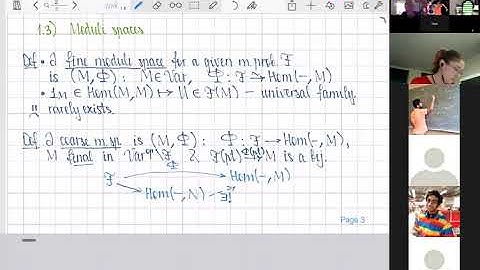 1.3) Moduli spaces
Def • ∂ fine moduli space for a given m. prob. F
is (M, Φ) : M ∈ Var, Φ : F ⥲ Hom(−, M)
• 1_M ∈ Hom(M, M) ↦ U ∈ F(M) – universal family
!! rarely exists.
Def ∂ coarse m. sp. is (M, Φ) : Φ : F → Hom(−, M),
M final in & F(M) M is a bij.
F Φ Hom(−, M)
Hom(−, N) ∃!
Page 3